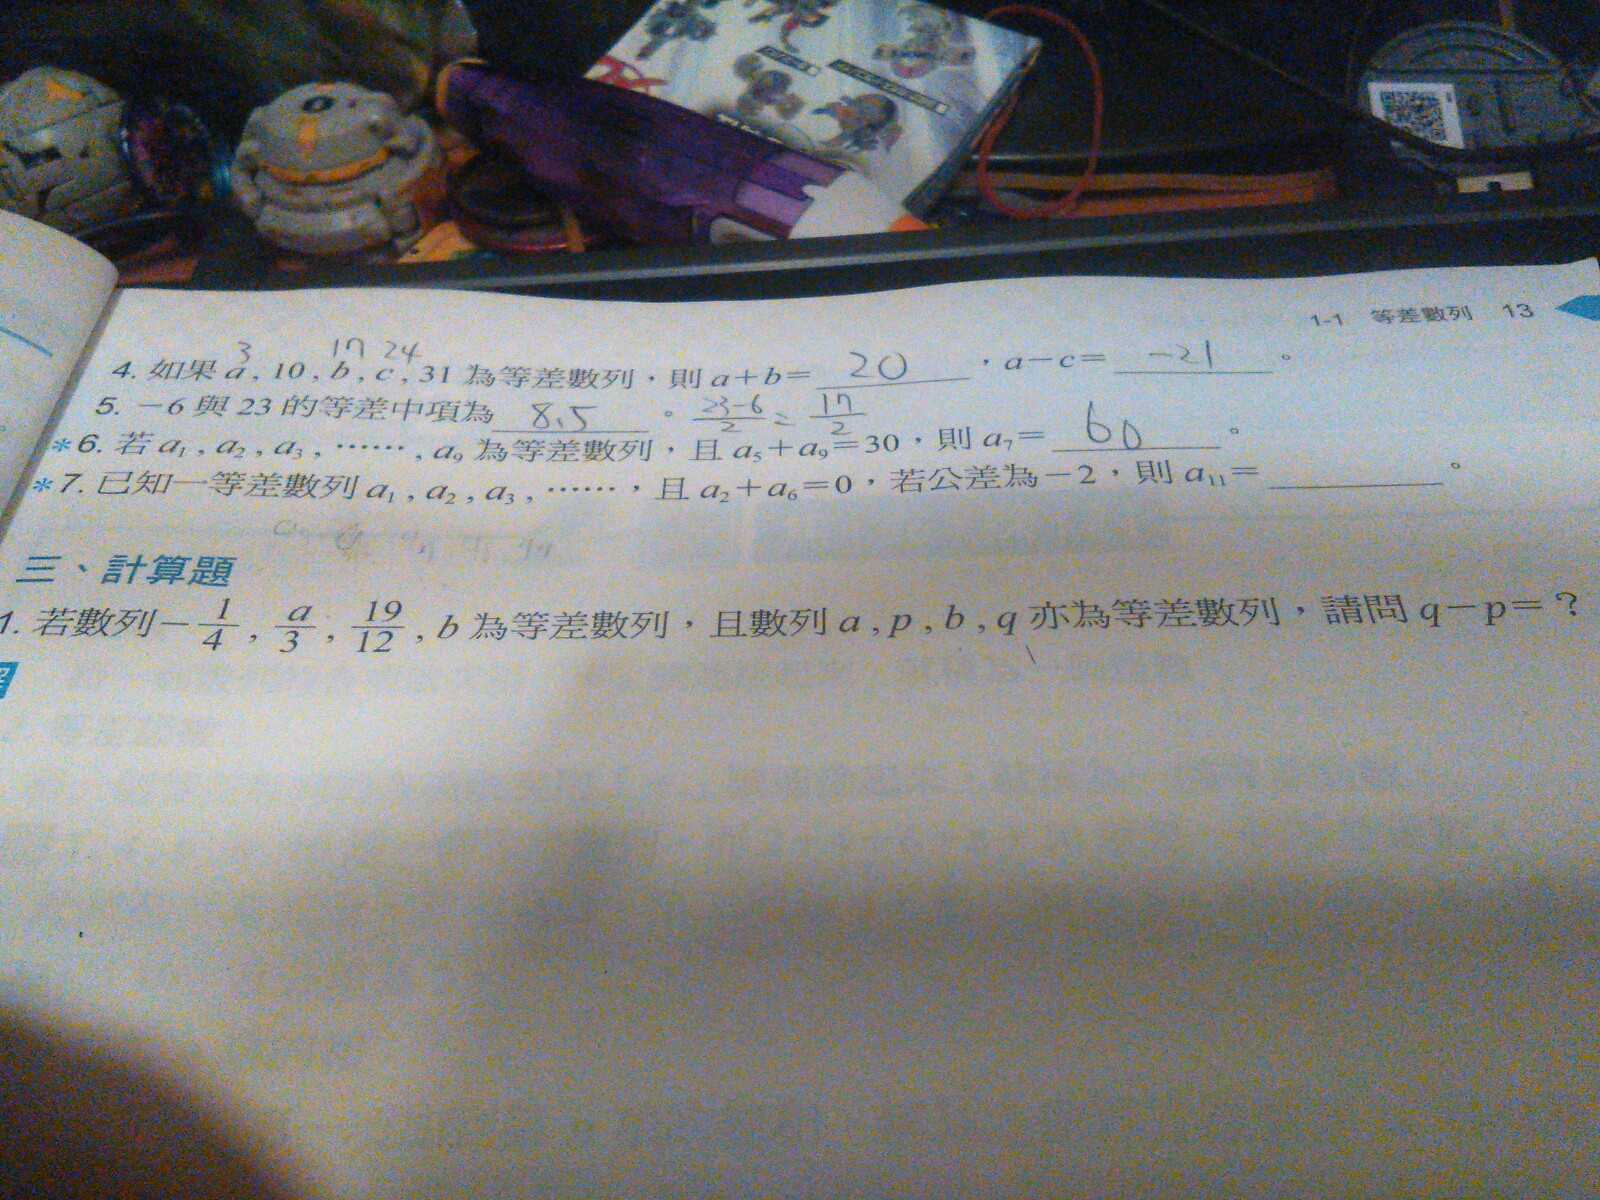 1-1 等差數列 13
3 17 24
4. 如果 a , 10 , b , c , 31 為等差數列，則 a＋b＝ 20 ，a－c＝ －21 。
5. －6 與 23 的等差中項為 8.5 。 23-6/2 = 17/2
*6. 若 a₁ , a₂ , a₃ , …… , a₉ 為等差數列，且 a₅＋a₉＝30，則 a₇＝ 60 。
*7. 已知一等差數列 a₁ , a₂ , a₃ , ……，且 a₂＋a₆＝0，若公差為－2，則 a₁₁＝ 。
三、計算題
1. 若數列－1/4 , a/3 , 19/12 , b 為等差數列，且數列 a , p , b , q 亦為等差數列，請問 q－p＝？